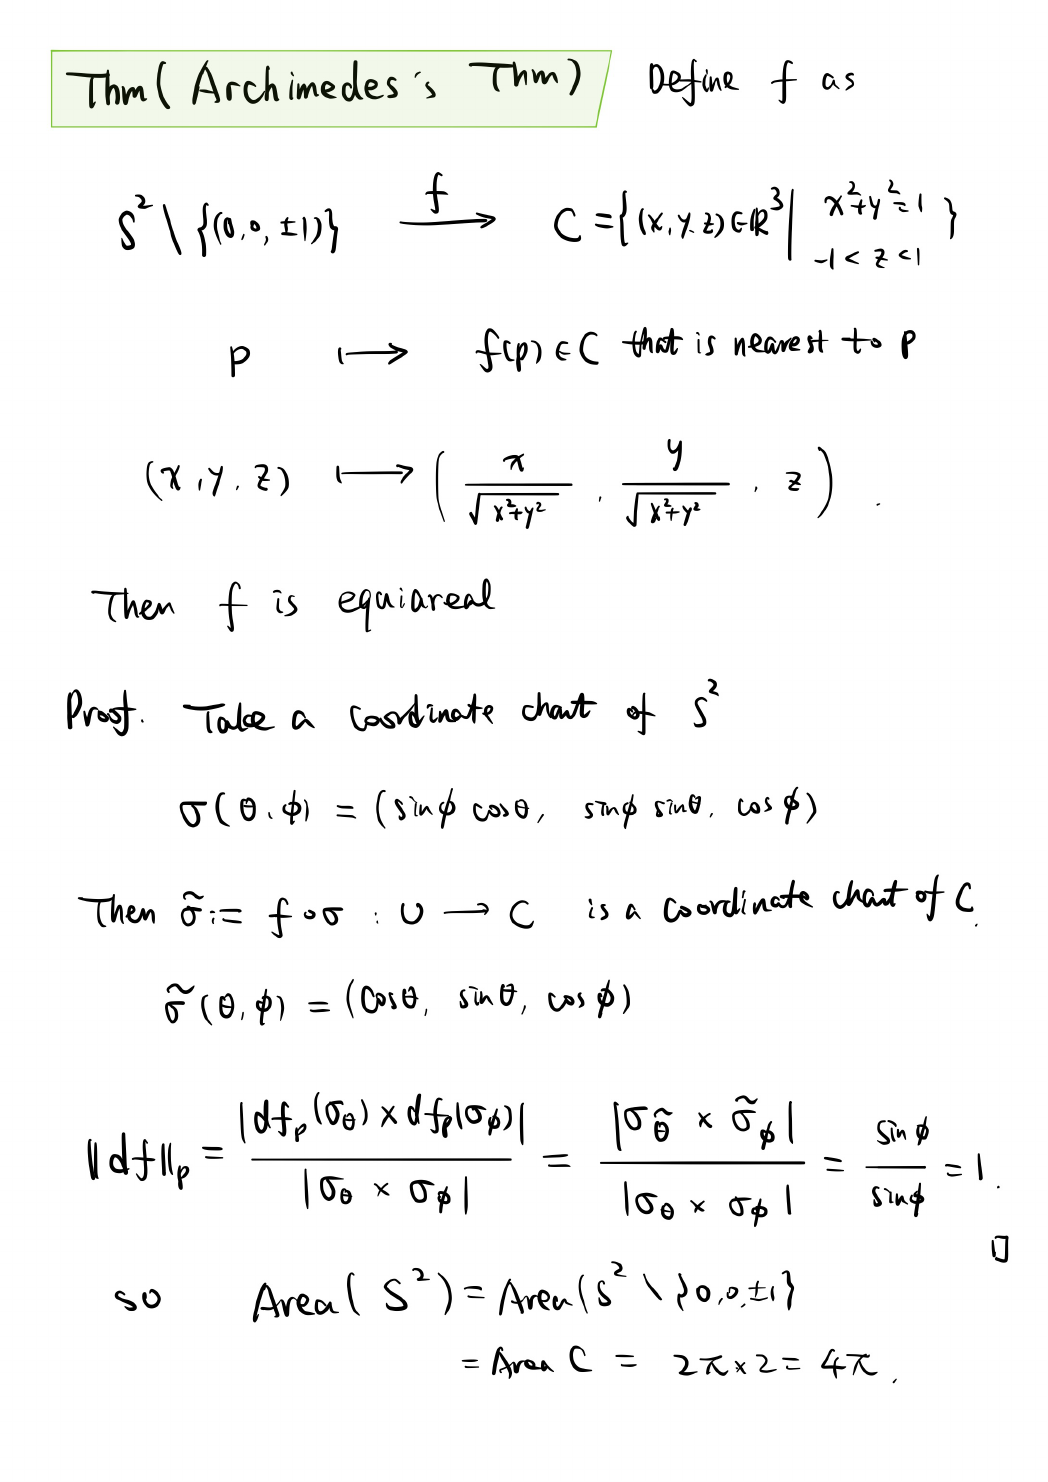 Thm ( Archimedes's Thm) Define f as
S² \ {(0,0,±1)} —f→ C = {(x,y,z)∈ℝ³ | x²+y²=1, -1<z<1}
p ↦ f(p) ∈ C that is nearest to p
(x,y,z) ↦ ( x/√(x²+y²), y/√(x²+y²), z ).
Then f is equiareal
Proof. Take a coordinate chart of S²
σ(θ,φ) = (sinφ cosθ, sinφ sinθ, cosφ)
Then σ̃ := f∘σ : U → C is a coordinate chart of C.
σ̃(θ,φ) = (cosθ, sinθ, cosφ)
‖df‖ₚ = |dfₚ(σ_θ) × dfₚ(σ_φ)| / |σ_θ × σ_φ| = |σ_θ̃ × σ̃_φ| / |σ_θ × σ_φ| = sinφ / sinφ = 1.
□
so Area( S² ) = Area(S² \ {0,0,±1}
= Area C = 2π×2 = 4π.